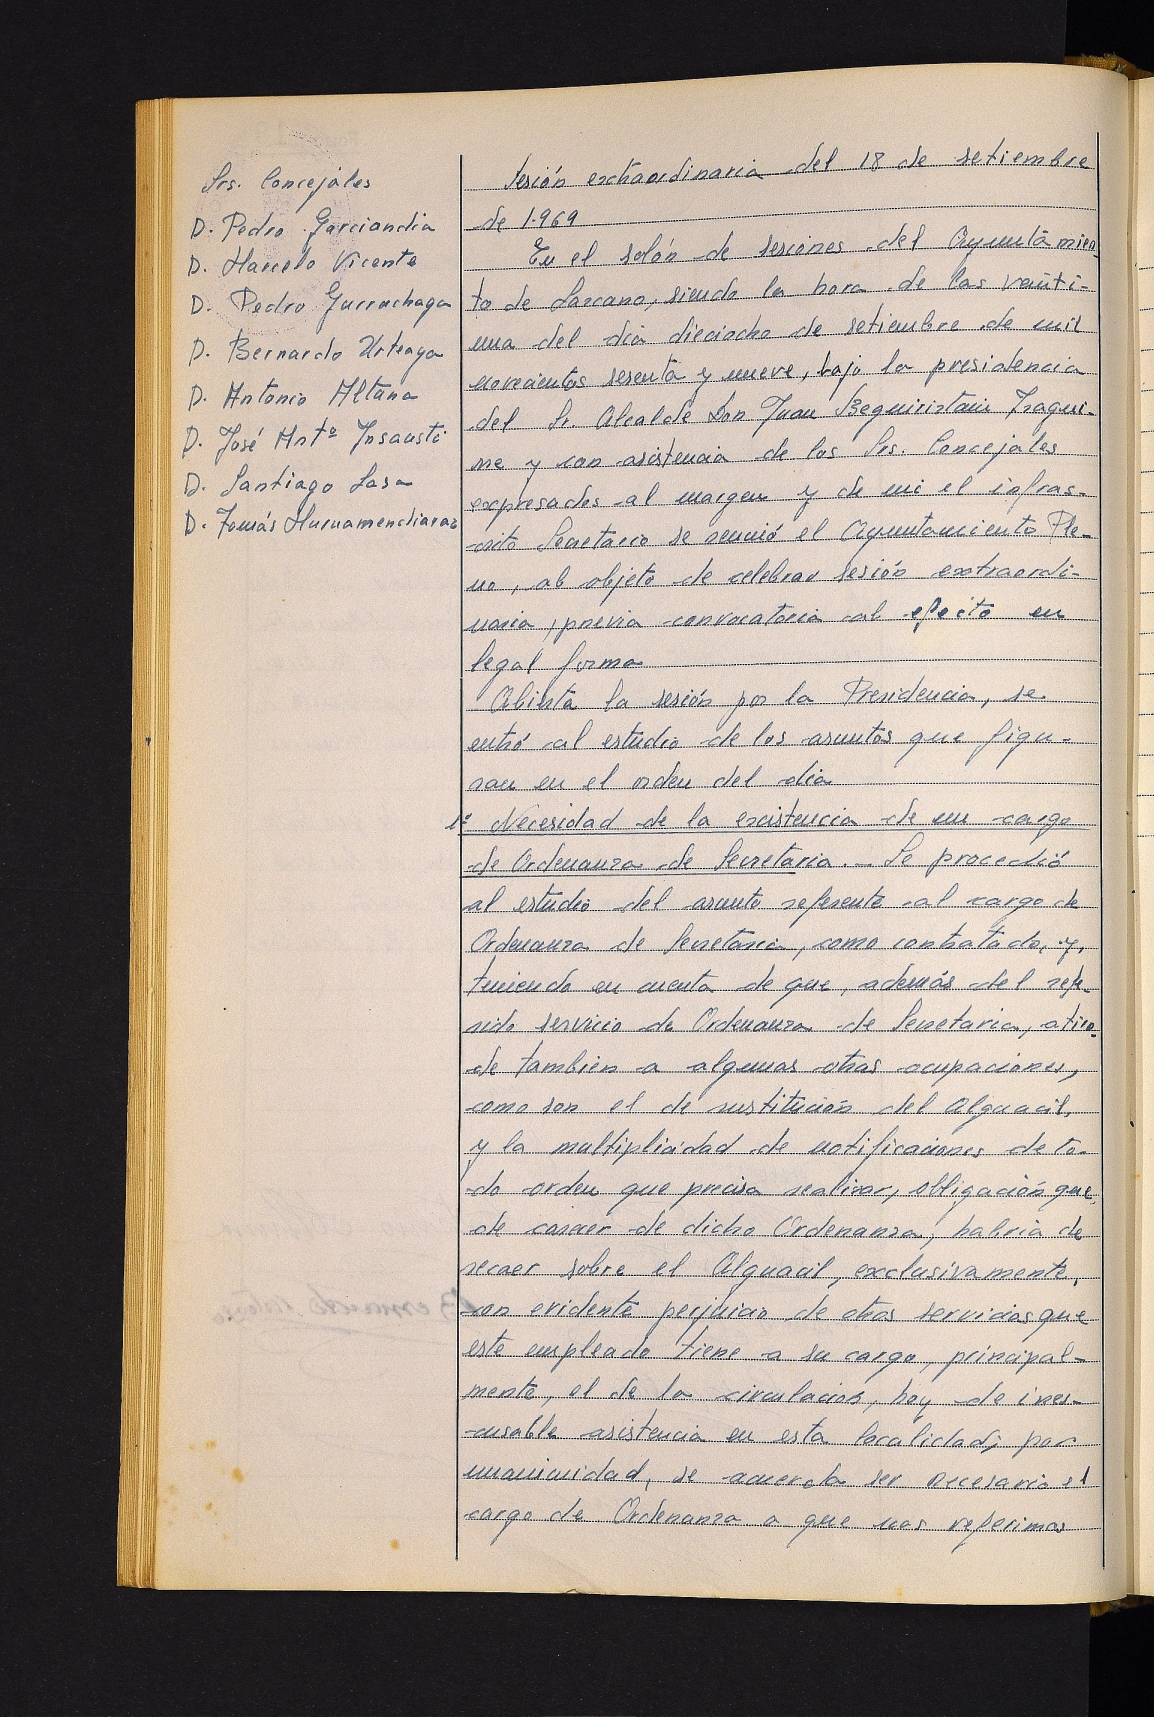 Srs. Concejales
D. Pedro Garciandia
D. Marcelo Vicente
D. Pedro Gurruchaga
D. Bernardo Urteaga
D. Antonio Altuna
D. José Antº Insausti
D. Santiago Lasa
D. Tomás Muruamendiaraz
Sesión extraordinaria del 18 de setiembre
de 1.969
En el salón de sesiones del Ayuntamien-
to de Lazcano, siendo la hora de las veinti-
una del dia dieciocho de setiembre de mil
novecientos sesenta y nueve, bajo la presidencia
del Sr. Alcalde Don Juan Beguiristain Izagui-
rre y con asistencia de los Srs. Concejales
expresados al margen y de mi el infras-
crito Secretario se reunió el Ayuntamiento Ple-
no, al objeto de celebrar sesión extraordi-
naria, previa convocatoria al efecto en
legal forma
Abierta la sesión por la Presidencia, se
entró al estudio de los asuntos que figu-
ran en el orden del dia
1º Necesidad de la existencia de un cargo
de Ordenanza de Secretaria. - Se procedió
al estudio del asunto referente al cargo de
Ordenanza de Secretaria, como contratado, y,
teniendo en cuenta de que, además del refe-
rido servicio de Ordenanza de Secretaria, atien-
de tambien a algunas otras ocupaciones,
como son el de sustitución del Alguacil,
y la multiplicidad de notificaciones de to-
do orden que precisa realizar, obligación que,
de carecer de dicho Ordenanza, habria de
recaer sobre el Alguacil, exclusivamente,
con evidente perjuicio de otros servicios que
este empleado tiene a su cargo, principal-
mente, el de la circulacion, hoy de inex-
cusable asistencia en esta localidad; por
unanimidad, se acuerda ser necesario el
cargo de Ordenanza a que nos referimos